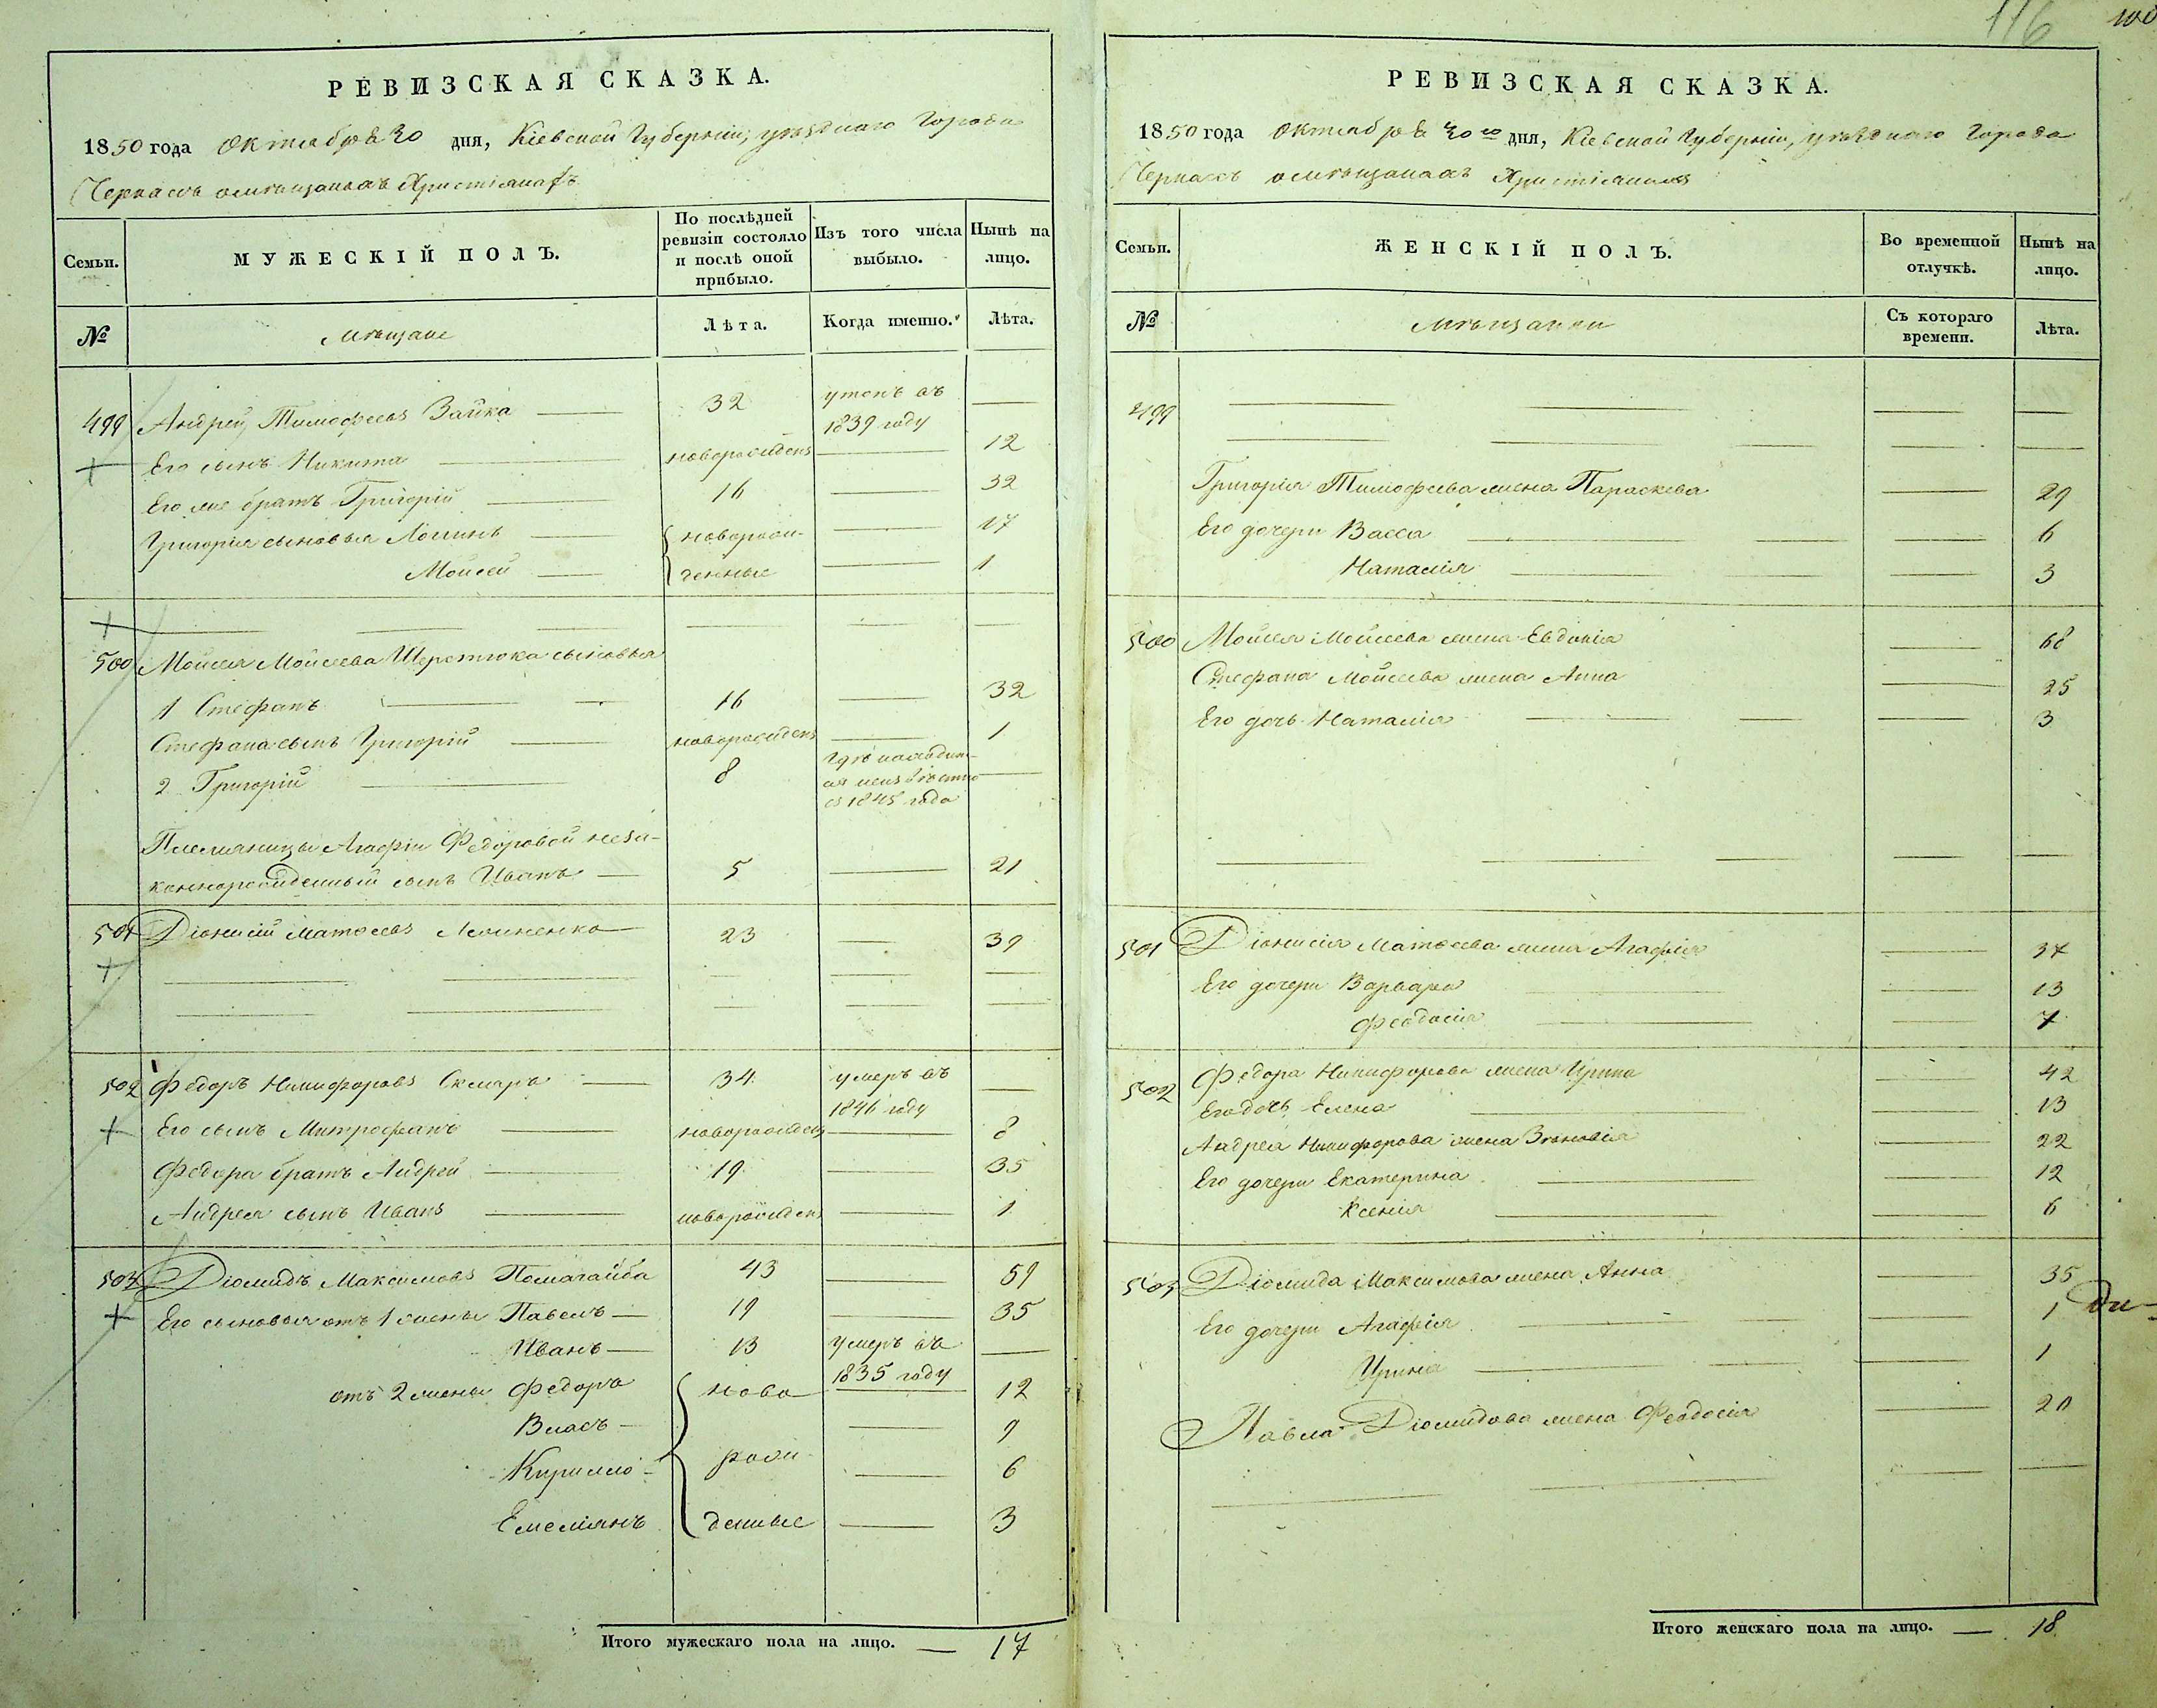 116
РЕВИЗСКАЯ СКАЗКА.
1850 года Октября 30 дня, Кіевской Губерніи, уѣзднаго Города
Черкасъ омѣщанахъ Христіянахъ
Семьи.
МУЖЕСКІЙ ПОЛЪ.
По послѣдней ревизіи состояло и послѣ оной прибыло.
Изъ того числа выбыло.
Нынѣ на лицо.
№
мѣщане
Лѣта.
Когда именно.
Лѣта.
499 Андрей Тимофеевъ Зайка — 32 утопъ въ 1839 году —
Его сынъ Никита — новорожденъ — 12
Его же братъ Григорій — 16 — 32
Григорія сыновья Логинъ — новорож- — 17
Моисей — денные — 1
500 Моисея Моисеева Шереметока сыновья
1 Стефанъ — 16 — 32
Стефана сынъ Григорій — новорожденъ — 1
2 Григорій — 8 гдѣ находит-
ся неизвѣстно —
съ 1845 года
Племяницы Агафіи Федоровой неза-
коннорожденный сынъ Иванъ — 5 — 21
501 Діонисій Матѳеевъ Логиненко 23 — 39
502 Федоръ Никифоровъ Скляръ — 34 умеръ въ —
1846 году
Его сынъ Митрофанъ — новорожденъ — 8
Федора братъ Андрей — 19 — 35
Андрея сынъ Иванъ — новорожденъ — 1
503 Діомидъ Максимовъ Помагайба 43 — 59
Его сыновья отъ 1 жены Павелъ — 19 — 35
Иванъ — 13 умеръ въ —
1835 году
отъ 2 жены Федоръ ново — 12
Власъ — — 9
Кирилло — рож- — 6
Емеліянъ денные — 3
Итого мужескаго пола на лицо. — 17
РЕВИЗСКАЯ СКАЗКА.
1850 года Октября 30го дня, Кіевской Губерніи, уѣзднаго Города
Черкасъ омѣщанахъ Христіянахъ
Семьи.
ЖЕНСКІЙ ПОЛЪ.
Во временной отлучкѣ.
Нынѣ на лицо.
№
мѣщанки
Съ котораго времени.
Лѣта.
499
Григорія Тимофеева жена Параскева — 29
Его дочери Васса — 6
Наталія — 3
500 Моисея Моисеева жена Евдокія — 68
Стефана Моисеева жена Анна — 25
Его дочь Наталія — 3
501 Діонисія Матѳеева жена Агафія — 37
Его дочери Варвара — 13
Феодосія — 7
502 Федора Никифорова жена Ирина — 42
Его дочь Елена — 13
Андрея Никифорова жена Зѣновія — 22
Его дочери Екатерина — 12
Ксенія — 6
503 Діомида Максимова жена Анна — 35
Его дочери Агафія — 1
Ирина — 1
Павла Діомидова жена Феодосія — 20
Итого женскаго пола на лицо. — 18